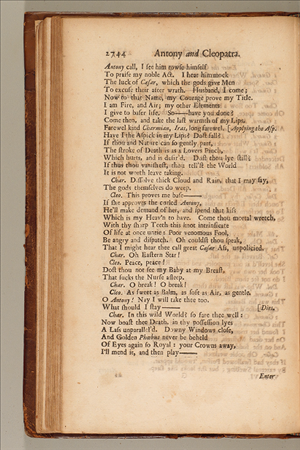 2744 Antony and Cleopatra.
Antony call, I see him rowse himself
To praise my noble Act. I hear him mock
The luck of Cæsar, which the gods give Men
To excuse their after wrath. Husband, I come;
Now to that Name, my Courage prove my Title.
I am Fire, and Air; my other Elements
I give to baser life. So——have you done?
Come then, and take the last warmth of my Lips.
Farewel kind Charmian, Iras, long farewel. [Applying the Asp.
Have I the Aspick in my Lips? Dost fall?
If thou and Nature can so gently part,
The stroke of Death is as a Lovers Pinch,
Which hurts, and is desir'd. Dost thou lye still?
If thus thou vanishest, thou tell'st the World
It is not worth leave taking.
Char. Dissolve thick Cloud and Rain, that I may say,
The gods themselves do weep.
Cleo. This proves me base——
If she approach the curled Antony,
He'll make demand of her, and spend that kiss
Which is my Heav'n to have. Come thou mortal wretch,
With thy sharp Teeth this knot intrinsicate
Of life at once untie: Poor venomous Fool,
Be angry and dispatch. Oh couldst thou speak,
That I might hear thee call great Cæsar Ass, unpolicied.
Char. Oh Eastern Star!
Cleo. Peace, peace!
Dost thou not see my Baby at my Breast,
That sucks the Nurse asleep.
Char. O break! O break!
Cleo. As sweet as Balm, as soft as Air, as gentle.
O Antony! Nay I will take thee too.
What should I stay—— [Dies.
Char. In this wild World? so fare thee well:
Now boast thee Death, in thy possession lyes
A Lass unparallel'd. Downy Windows close,
And Golden Phœbus never be beheld
Of Eyes again so Royal; your Crowns away,
I'll mend it, and then play——
Enter